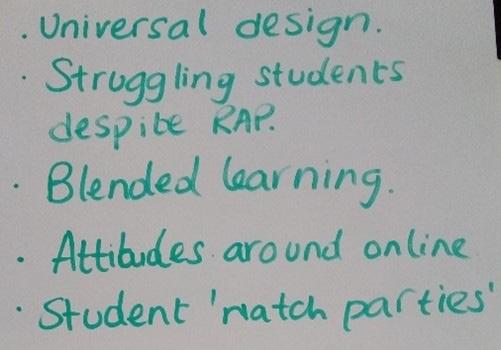 · Universal design.
· Struggling students
despite RAP.
· Blended learning.
· Attitudes around online
· Student 'watch parties'